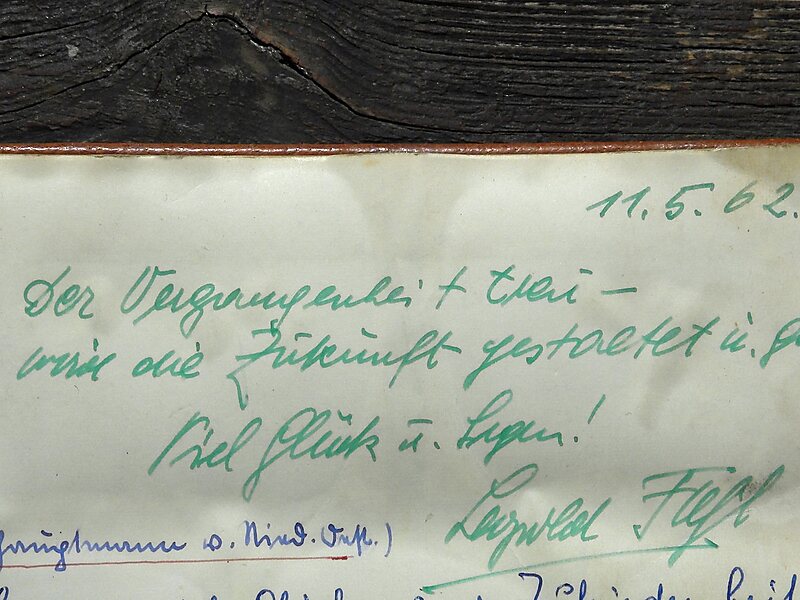 11.5.62.
Der Vergangenheit treu –
wird die Zukunft gestaltet u.
Viel Glück u. Segen!
Leopold Figl
hauptmann v. Nied. Öst.)